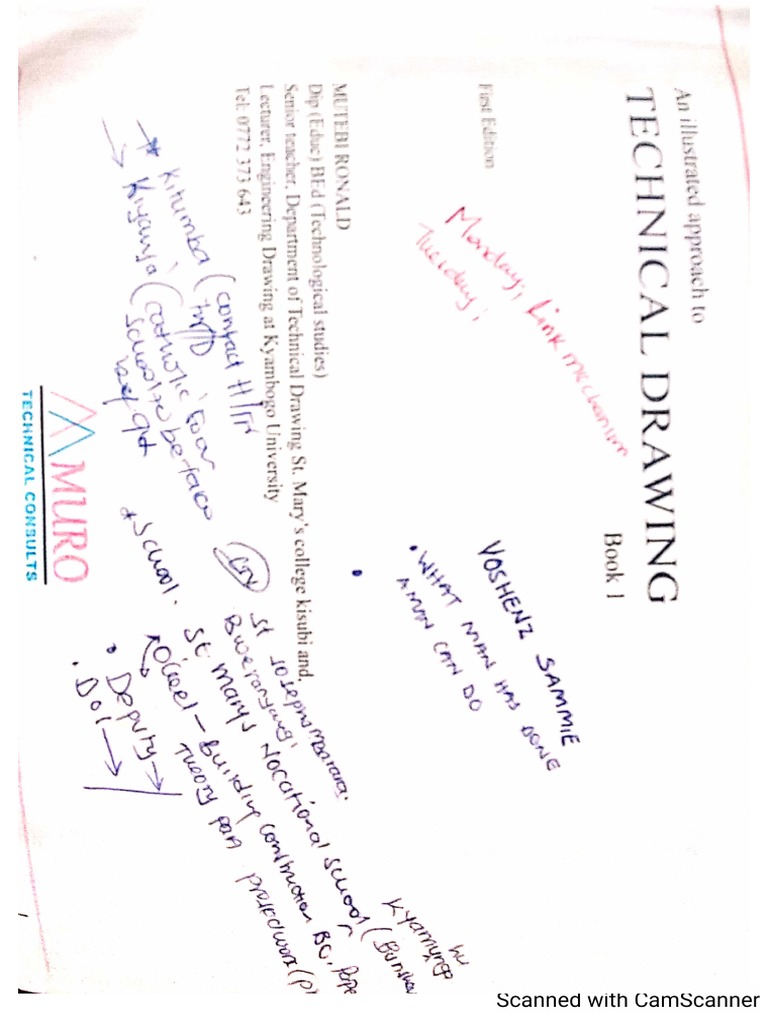 An illustrated approach to
TECHNICAL DRAWING
Book 1
First Edition
Monday; Link mechanism
Tuesday;
VOSHENZ SAMMIE
• WHAT MAN HAS DONE
A MAN CAN DO
MUTEBI RONALD
Dip (Educ) BEd (Technological studies)
Senior teacher, Department of Technical Drawing St. Mary's college kisubi and,
Lecturer, Engineering Drawing at Kyambogo University
Tel: 0772 373 643
Kitumba (contact
Kiyanja (catholic
School
St Josephs Mbarara.
Bweranyangi,
St Marys Vocational School
Kyamuhunga
O'level - Building Construction BC,
Theory
• Deputy
MURO
TECHNICAL CONSULTS
Scanned with CamScanner